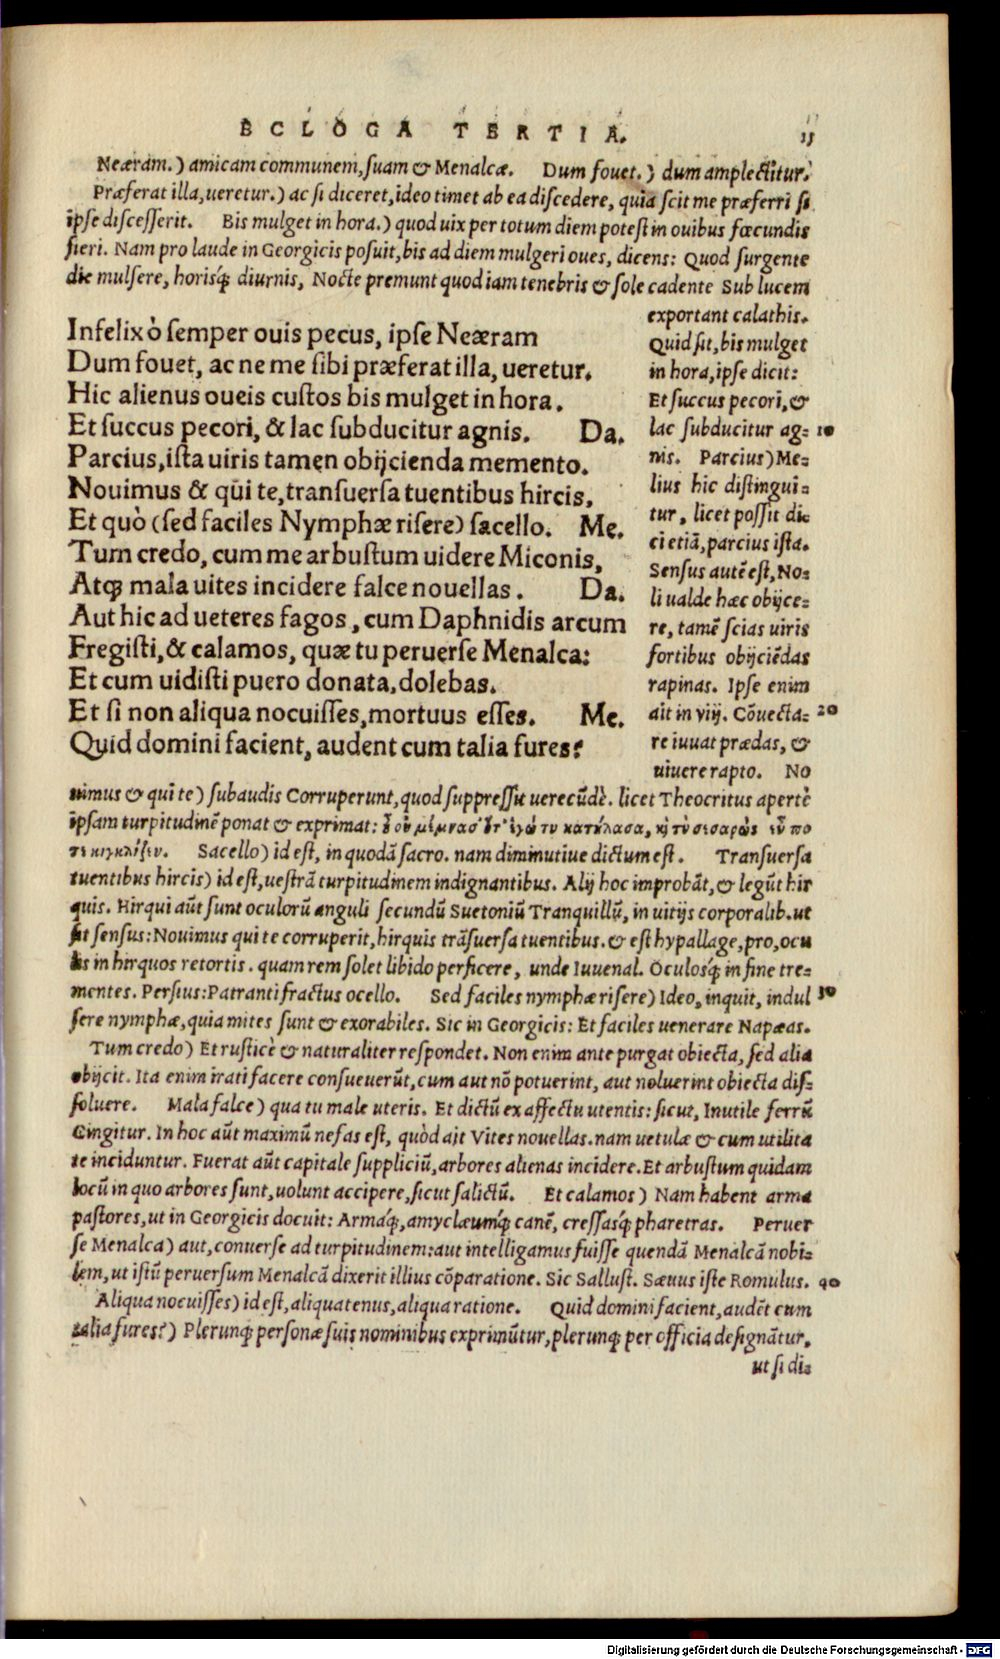 ECLOGA TERTIA. 15
Neæram.) amicam communem, suam & Menalcæ. Dum fouet.) dum amplectitur.
Præferat illa, ueretur.) ac si diceret, ideo timet ab ea discedere, quia scit me præferri si
ipse discesserit. Bis mulget in hora.) quod uix per totum diem potest in ouibus fœcundis
fieri. Nam pro laude in Georgicis posuit, bis ad diem mulgeri oues, dicens: Quod surgente
die mulsere, horisq́; diurnis, Nocte premunt quod iam tenebris & sole cadente Sub lucem
exportant calathis.
Quid sit, bis mulget
in hora, ipse dicit:
Et succus pecori, &
lac subducitur ag= 10
nis. Parcius) Me=
lius hic distingui=
tur, licet possit di=
ci etiā, parcius ista.
Sensus autē est, No=
li ualde hæc obijce=
re, tamē scias uiris
fortibus obijciēdas
rapinas. Ipse enim
ait in viij. Cōuecta= 20
re iuuat prædas, &
uiuere rapto. No
Infelix ò semper ouis pecus, ipse Neæram
Dum fouet, ac ne me sibi præferat illa, ueretur.
Hic alienus oueis custos bis mulget in hora.
Et succus pecori, & lac subducitur agnis. Da.
Parcius, ista uiris tamen obijcienda memento.
Nouimus & qui te, transuersa tuentibus hircis,
Et quò (sed faciles Nymphæ risere) sacello. Me.
Tum credo, cum me arbustum uidere Miconis,
Atq; mala uites incidere falce nouellas. Da.
Aut hic ad ueteres fagos, cum Daphnidis arcum
Fregisti, & calamos, quæ tu peruerse Menalca:
Et cum uidisti puero donata, dolebas.
Et si non aliqua nocuisses, mortuus esses. Me.
Quid domini facient, audent cum talia fures?
uimus & qui te) subaudis Corruperunt, quod suppressit uerecūdè. licet Theocritus apertè
ipsam turpitudinē ponat & exprimat:
Sacello) id est, in quodā sacro. nam diminutiue dictum est. Transuersa
tuentibus hircis) id est, uestrā turpitudinem indignantibus. Alij hoc improbāt, & legūt hir
quis. Hirqui aūt sunt oculorū anguli secundū Suetoniū Tranquillū, in uitijs corporalib. ut
sit sensus: Nouimus qui te corruperit, hirquis trāsuersa tuentibus. & est hypallage, pro, ocu
lis in hirquos retortis. quam rem solet libido perficere, unde Iuuenal. Oculosq́; in fine tre=
mentes. Persius: Patranti fractus ocello. Sed faciles nymphæ risere) Ideo, inquit, indul 30
sere nymphæ, quia mites sunt & exorabiles. Sic in Georgicis: Et faciles uenerare Napæas.
Tum credo) Et rusticè & naturaliter respondet. Non enim ante purgat obiecta, sed alia
obijcit. Ita enim irati facere consueuerūt, cum aut nō potuerint, aut noluerint obiecta dis=
soluere. Mala falce) qua tu male uteris. Et dictū ex affectu utentis: sicut, Inutile ferrū
Cingitur. In hoc aūt maximū nefas est, quòd ait Vites nouellas. nam uetulæ & cum utilita
te inciduntur. Fuerat aūt capitale suppliciū, arbores alienas incidere. Et arbustum quidam
locū in quo arbores sunt, uolunt accipere, sicut salictū. Et calamos) Nam habent arma
pastores, ut in Georgicis docuit: Armaq́;, amyclæumq́; canē, cressasq́; pharetras. Peruer
se Menalca) aut, conuerse ad turpitudinem: aut intelligamus fuisse quendā Menalcā nobi=
lem, ut istū peruersum Menalcā dixerit illius cōparatione. Sic Sallust. Sæuus iste Romulus. 40
Aliqua nocuisses) id est, aliquatenus, aliqua ratione. Quid domini facient, audēt cum
talia fures?) Plerunq; personæ suis nominibus exprimūtur, plerunq; per officia designātur.
ut si di=
Digitalisierung gefördert durch die Deutsche Forschungsgemeinschaft - DFG